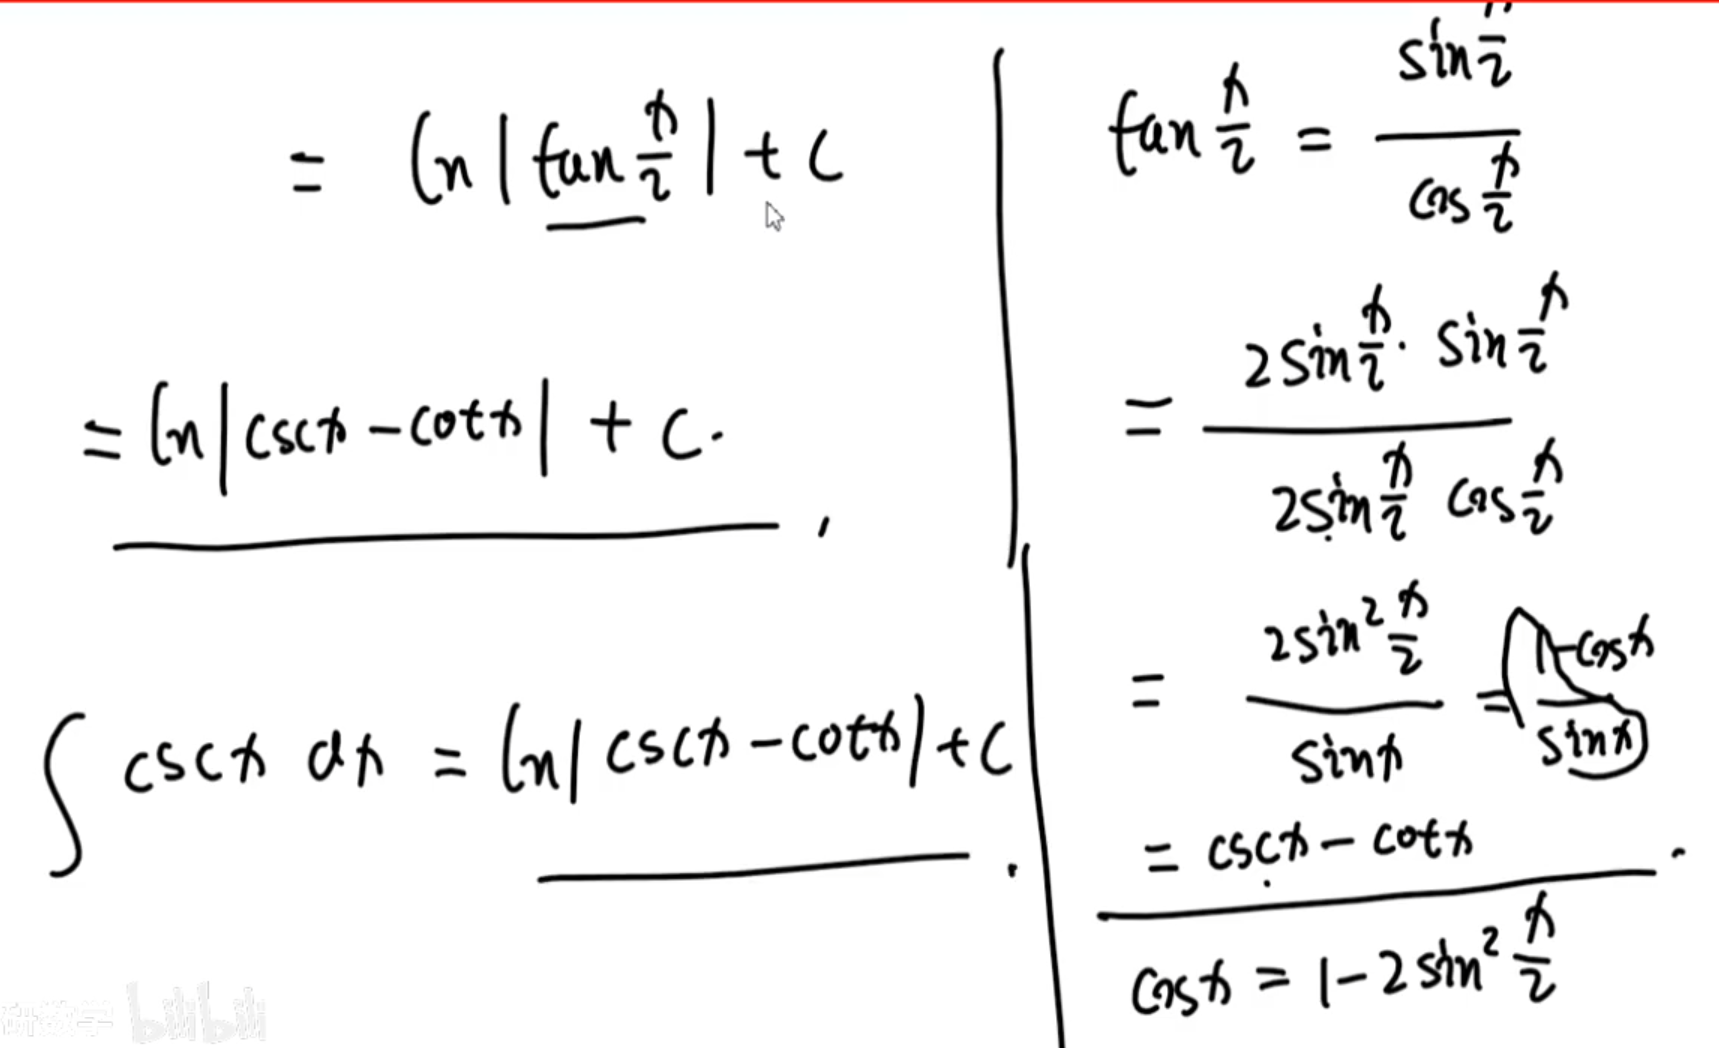 = ln|tan x/2| + C
= ln|cscx - cotx| + C.
∫ cscx dx = ln|cscx - cotx| + C.
tan x/2 = sin x/2 / cos x/2
= 2sin x/2 · sin x/2 / 2sin x/2 cos x/2
= 2sin² x/2 / sinx = 1-cosx / sinx
= cscx - cotx.
cosx = 1 - 2sin² x/2
研数学 bilibili